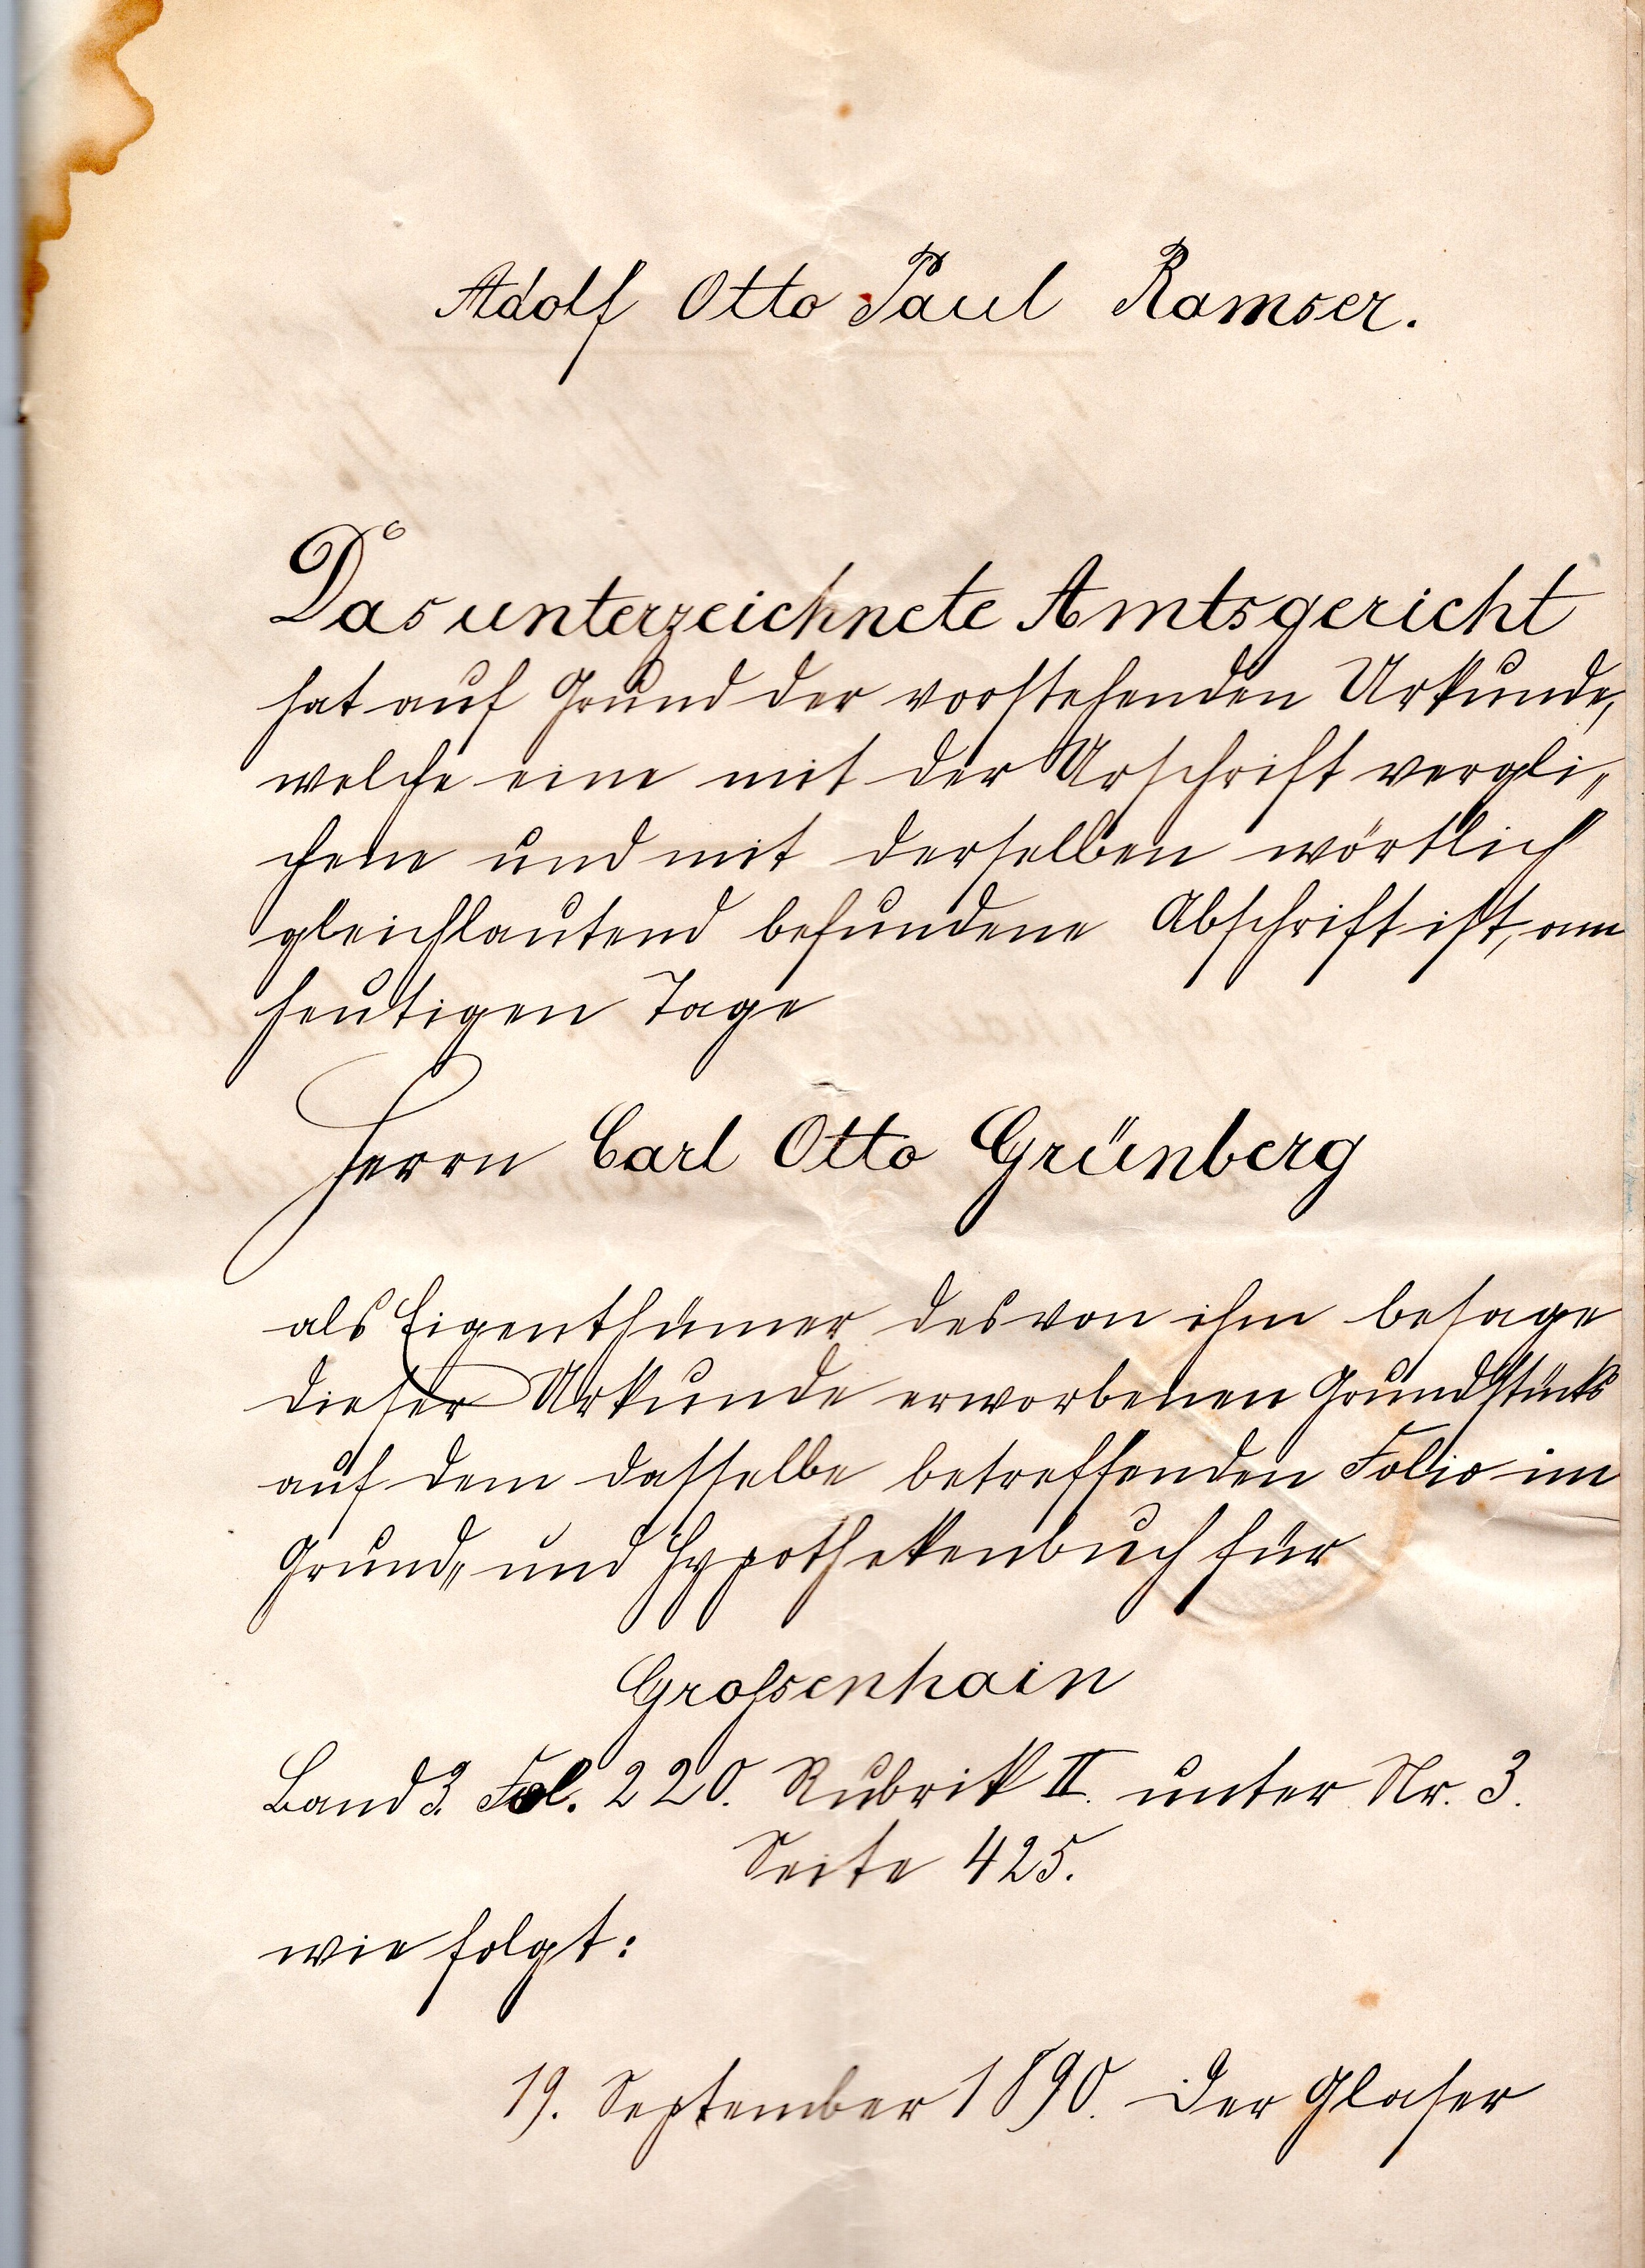 Adolf Otto Paul Ramser.
Das unterzeichnete Amtsgericht
hat auf Grund der vorstehenden Urkunde,
welche eine mit der Urschrift vergli„
chene und mit derselben wörtlich
gleichlautend befundene Abschrift ist, am
heutigen Tage
Herrn Carl Otto Grünberg
als Eigenthümer des von ihm besage
dieser Urkunde erworbenen Grundstücks
auf dem dasselbe betreffenden Folio im
Grund„ und Hypothekenbuch für
Grossenhain
Band 3. Fol. 220. Rubrik II. unter Nr. 3.
Seite 425.
wie folgt:
19. September 1890. Der Glaser